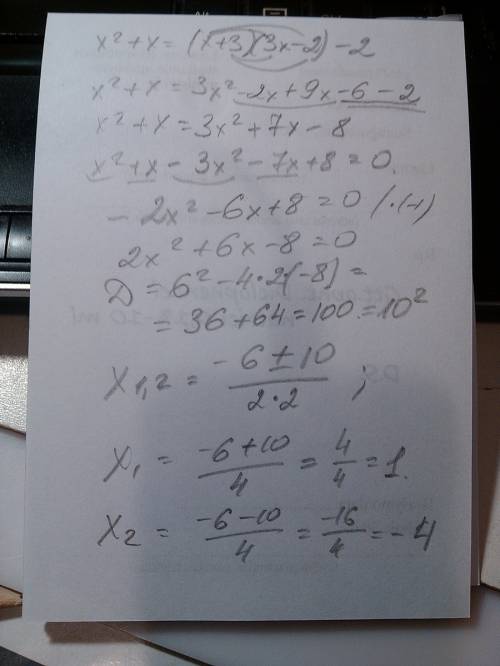 x² + x = (x+3)(3x-2) - 2
x² + x = 3x² - 2x + 9x - 6 - 2
x² + x = 3x² + 7x - 8
x² + x - 3x² - 7x + 8 = 0.
- 2x² - 6x + 8 = 0 / ·(-1)
2x² + 6x - 8 = 0
D = 6² - 4·2(-8) =
= 36 + 64 = 100 = 10²
x₁,₂ = (-6 ± 10)/(2·2) ;
x₁ = (-6+10)/4 = 4/4 = 1.
x₂ = (-6-10)/4 = -16/4 = -4